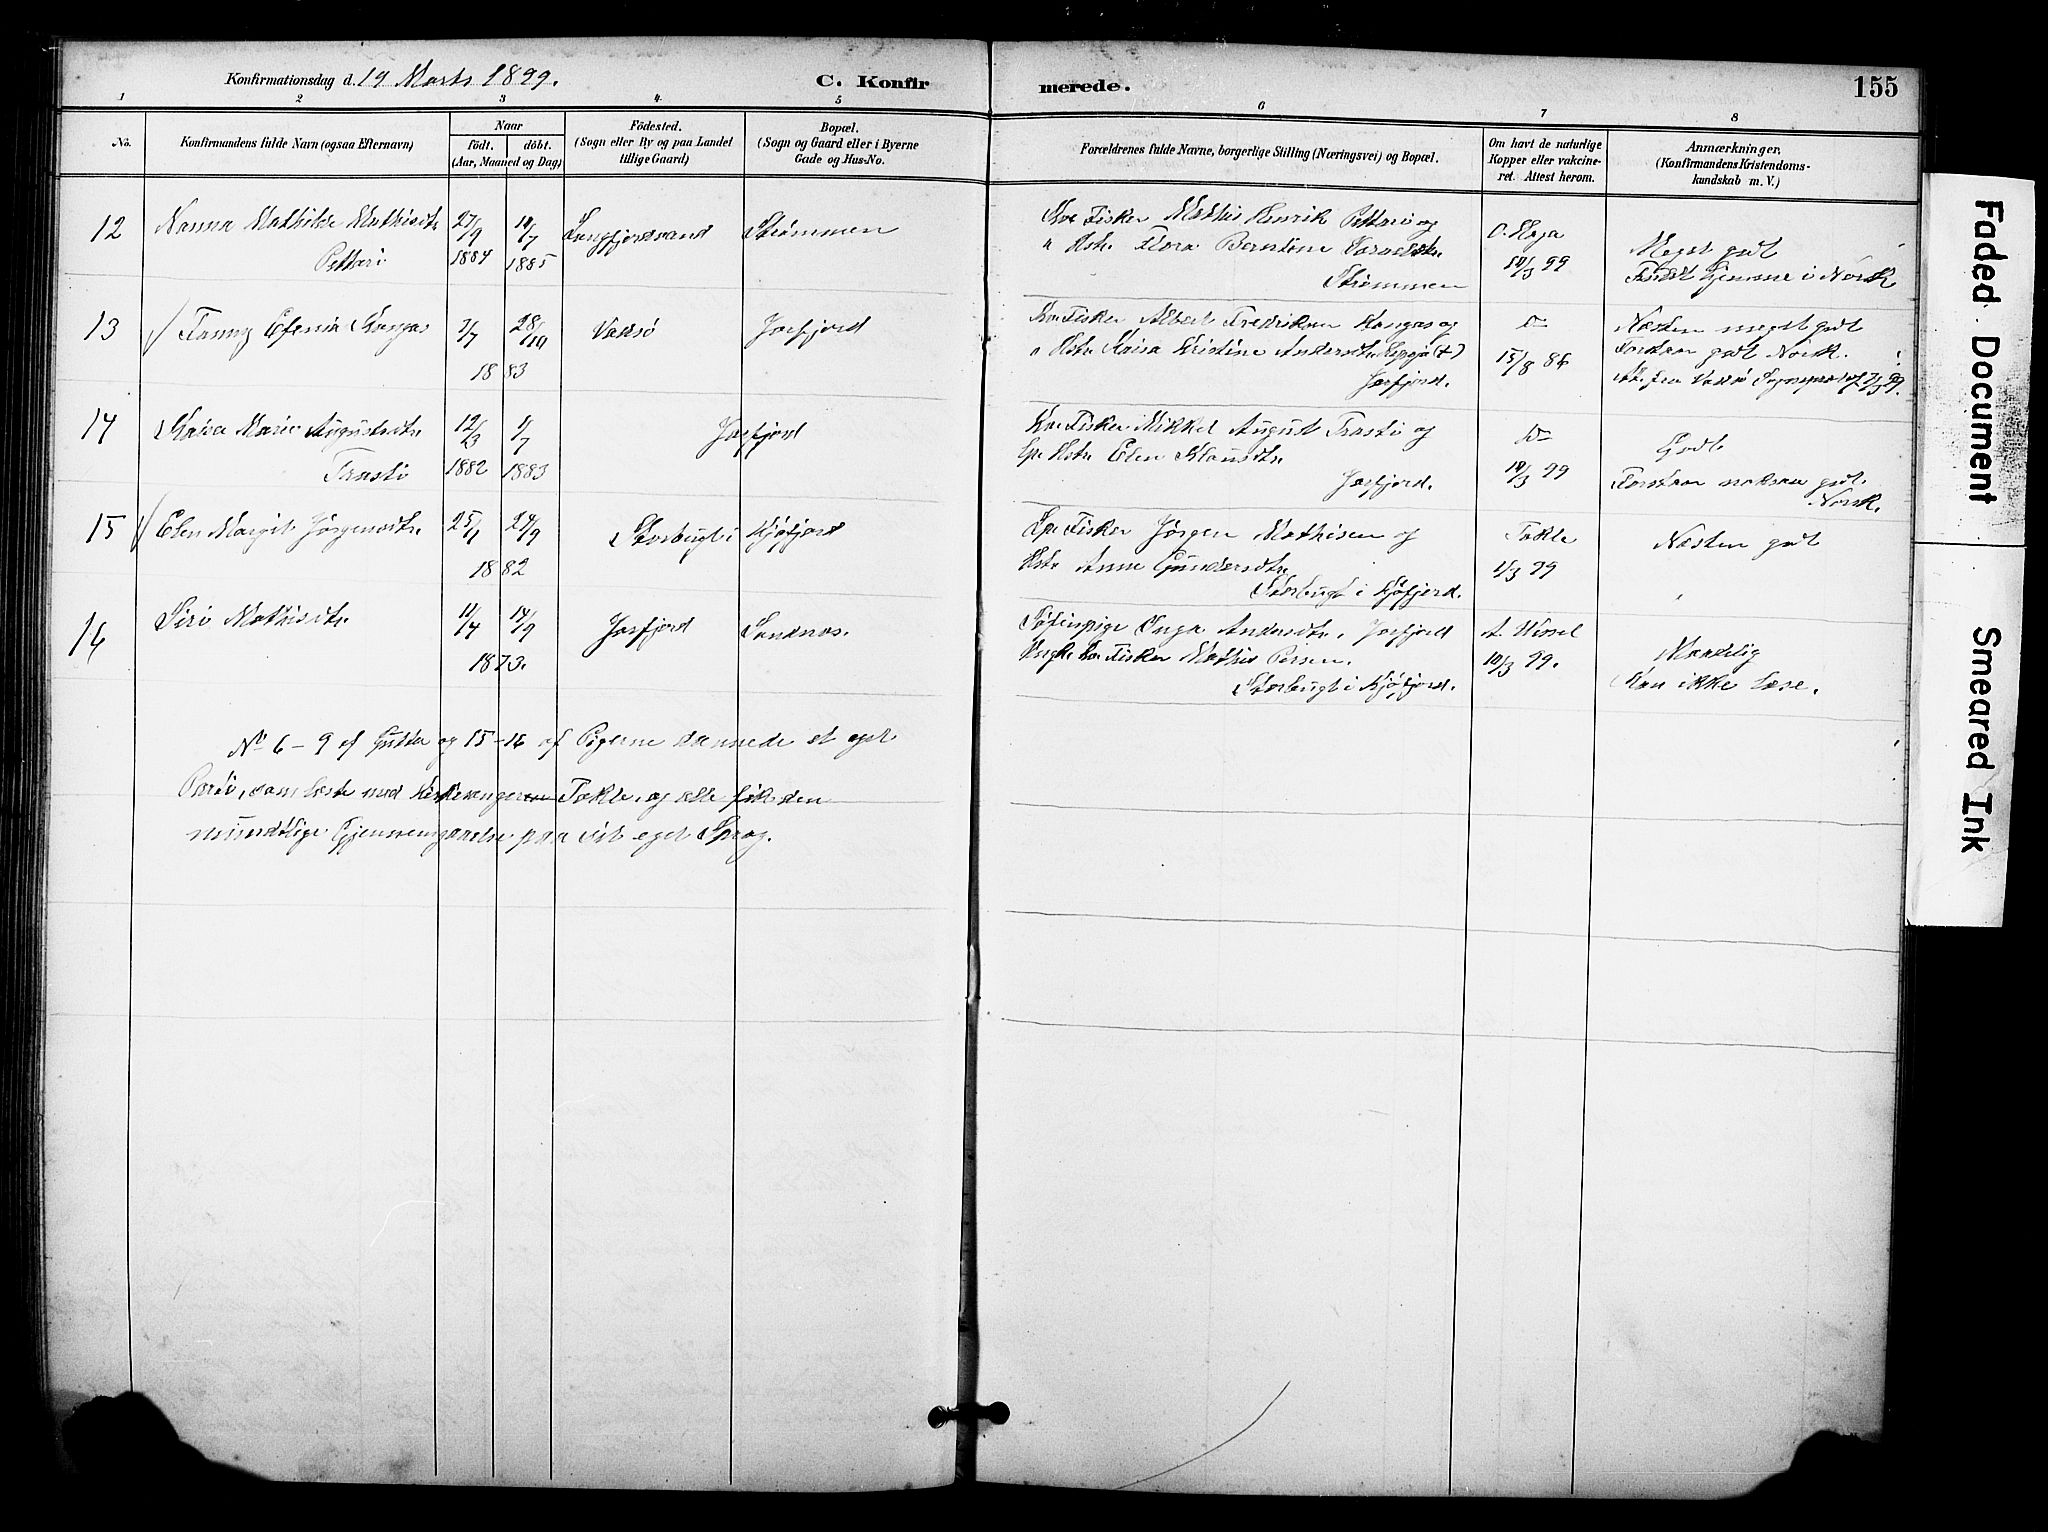 Konfirmationsdag d. 19 Marts 1899.
C. Konfir
merede.
155
1 2 3 4 5 6 7 8
No.
Konfirmandens fulde Navn (ogsaa Efternavn)
Naar
födt. döbt.
(Aar, Maaned og Dag)
Födested.
(Sogn eller By og paa Landet
tillige Gaard)
Bopæl.
(Sogn og Gaard eller i Byerne
Gade og Hus-No.
Forældrenes fulde Navne, borgerlige Stilling (Næringsvei) og Bopæl.
Om havt de naturlige
Kopper eller vakcine-
ret. Attest herom.
Anmærkninger,
(Konfirmandens Kristendoms-
kundskab m. V.)
12 Nanna Mathilde Mathisdtr
Pettari
27/9 1884
1885
Langfjordvand
Strømmen
Fisker Mathis Henrik Pettari og
Hstr. Flora Berntine
Strømmen
99
Meget godt
i Norsk
13 Fanny Efenia Kangas
7/7 28/10
1883
Vadsö
Jarfjord
Kv. Fisker Albert Fredriksen Kangas og
Hstr. Kaisa Kristine Andersdtr (+)
Jarfjord.
15/8 86
Næsten meget godt
Forstaar godt Norsk.
Att. fra Vadsö
14 Kaisa Marie Augustsdtr.
Trasti
12/3 1/7
1882 1883
Jarfjord
Kv. Fisker Mikkel August Trasti og
Hstr. Elen Klausdtr
Jarfjord.
99
Godt
Forstaar noksaa godt
Norsk.
15 Elen Margit Jörgensdtr.
25/1 24/9
1882
Storbugt i Kjöfjord
Fisker Jörgen Mathisen og
Hstr. Anne Gundersdtr.
Storbugt i Kjöfjord.
Takle
1/3 99
Næsten godt
16 Siri Mathisdtr.
11/4 14/9
1873.
Jarfjord
Sandnæs.
Söfinpige Inga Andersdtr. Jarfjord
Ungk. Fisker Mathis Persen.
Storbugt i Kjöfjord.
A. Wessel
10/3 99.
Maadelig
Kan ikke læse.
No 6 - 9 af Gutter og 15-16 af Pigerne dannede et eget
Parti, som læste med Kirkesanger Takle, og alle fik den
mundtlige Gjennemgaaelse paa sit eget Sprog.
Faded Document
Smeared Ink